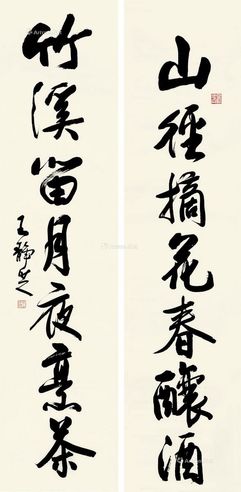 山徑摘花春釀酒
竹溪留月夜烹茶
王靜芝